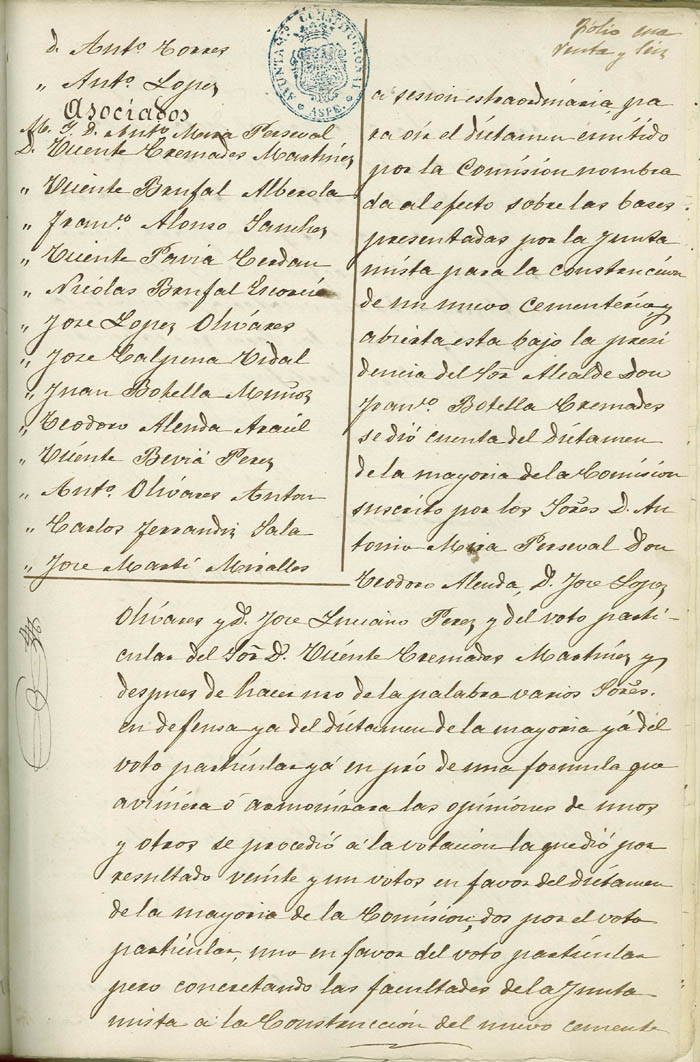 folio cua
renta y seis
AYUNTAMTO CONSTITUCIONAL
ASPE
D. Anto. Torres
" Anto. Lopez
Asociados
M. Y. D. Anto. Mira Perseval
D. Vicente Cremades Martinez
" Vicente Brufal Alberola
" Franco. Alonso Sanchez
" Vicente Pavia Cerdan
" Nicolas Brufal
" Jose Lopez Olivares
" Jose Calpena Vidal
" Juan Botella Muñoz
" Teodoro Alenda Azaül
" Vicente Beviá Perez
" Anto. Olivares Anton
" Carlos Ferrandiz Sala
" Jose Martí Miralles
a sesion estraordinária pa
ra oir el dictamen emitido
por la Comisión nombra
da al efecto sobre las bases
presentadas por la Junta
mista para la construcción
de un nuevo cementerio y
abierta esta bajo la presi
dencia del Sor. Alcalde Don
Franco. Botella Cremades
se dió cuenta del dictamen
de la mayoria de la Comision
suscrito por los Sores. D. An
tonio Mira Perseval Don
Teodoro Alenda, D. Jose Lopez
Olivares y D. Jose Luciano Perez y del voto parti-
cular del Sor. D. Vicente Cremades Martinez y
despues de hacer uso de la palabra varios Sores.
en defensa ya del dictamen de la mayoria yá del
voto particular yá en pró de una formula que
aviniera ó armonizara las opiniones de unos
y otros se procedió a la votación la que dió por
resultado veinte y un votos en favor del dictamen
de la mayoria de la Comision, dos por el voto
particular, uno en favor del voto particular
pero concretando las facultades de la Junta
mista a la Construcción del nuevo cemente